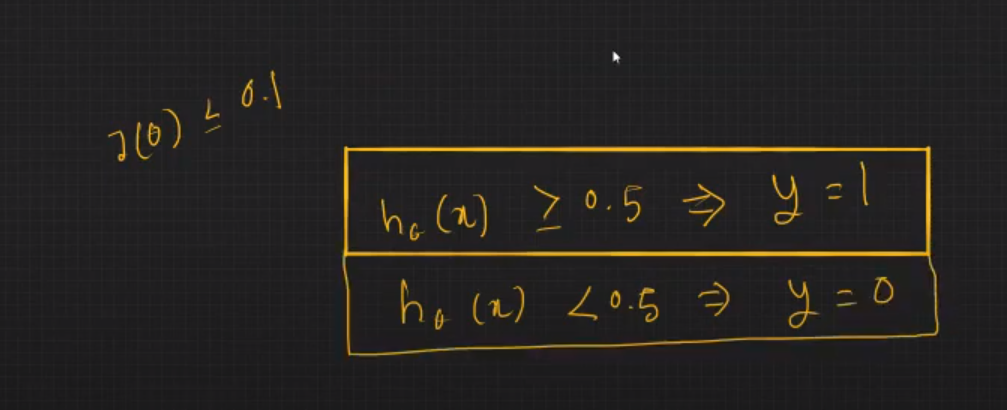 J(θ) ≤ 0.1
hθ(x) ≥ 0.5 ⇒ y = 1
hθ(x) < 0.5 ⇒ y = 0